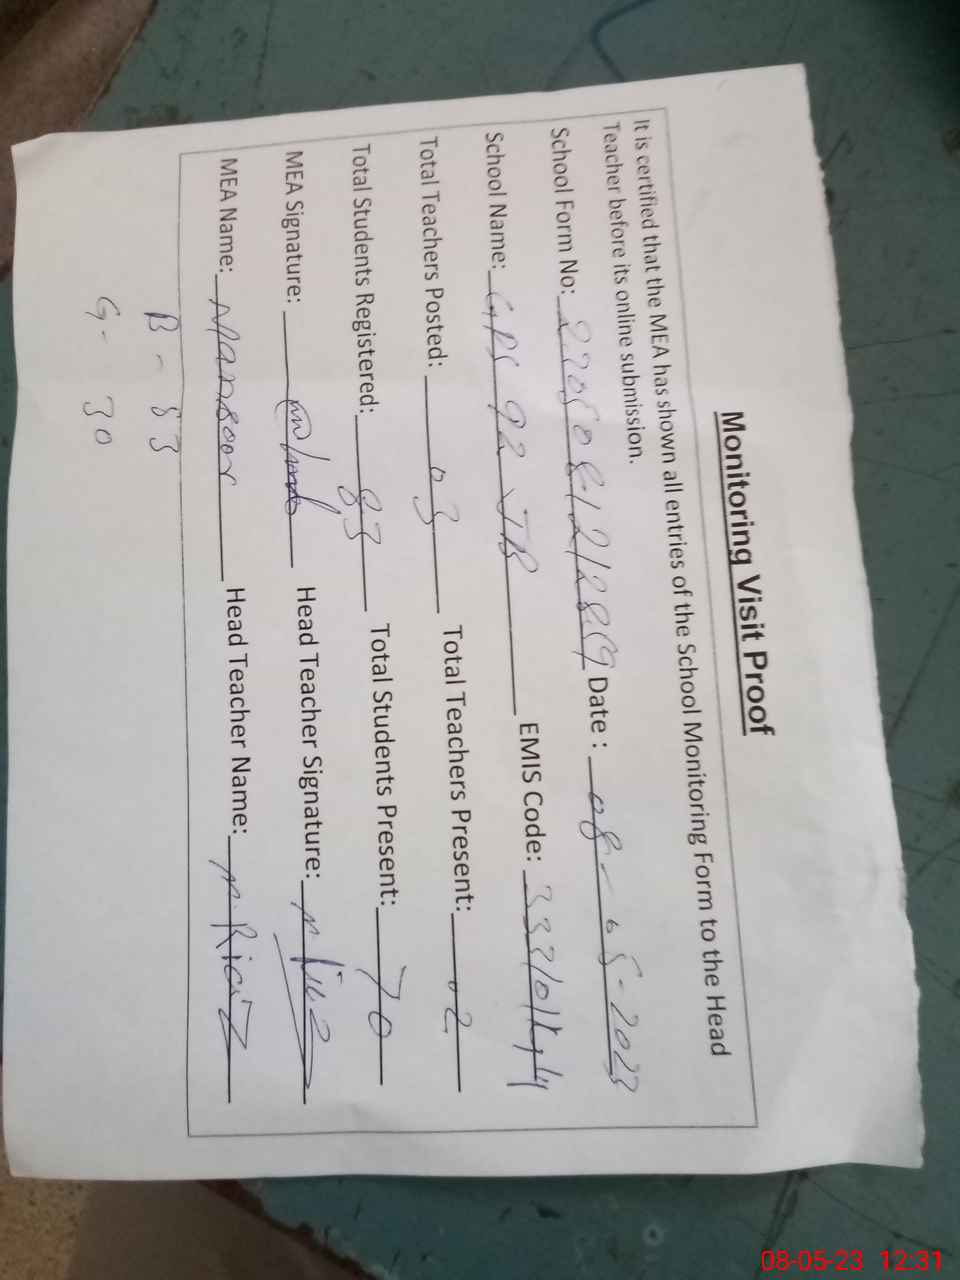 Monitoring Visit Proof
It is certified that the MEA has shown all entries of the School Monitoring Form to the Head
Teacher before its online submission.
School Form No: Date : 08-05-2023
School Name: GPS 92 JB EMIS Code:
Total Teachers Posted: 03 Total Teachers Present: 02
Total Students Registered: 83 Total Students Present: 70
MEA Signature: Head Teacher Signature:
MEA Name: Mansoor Head Teacher Name: M. Riaz
B - 53
G - 30
08-05-23 12:31